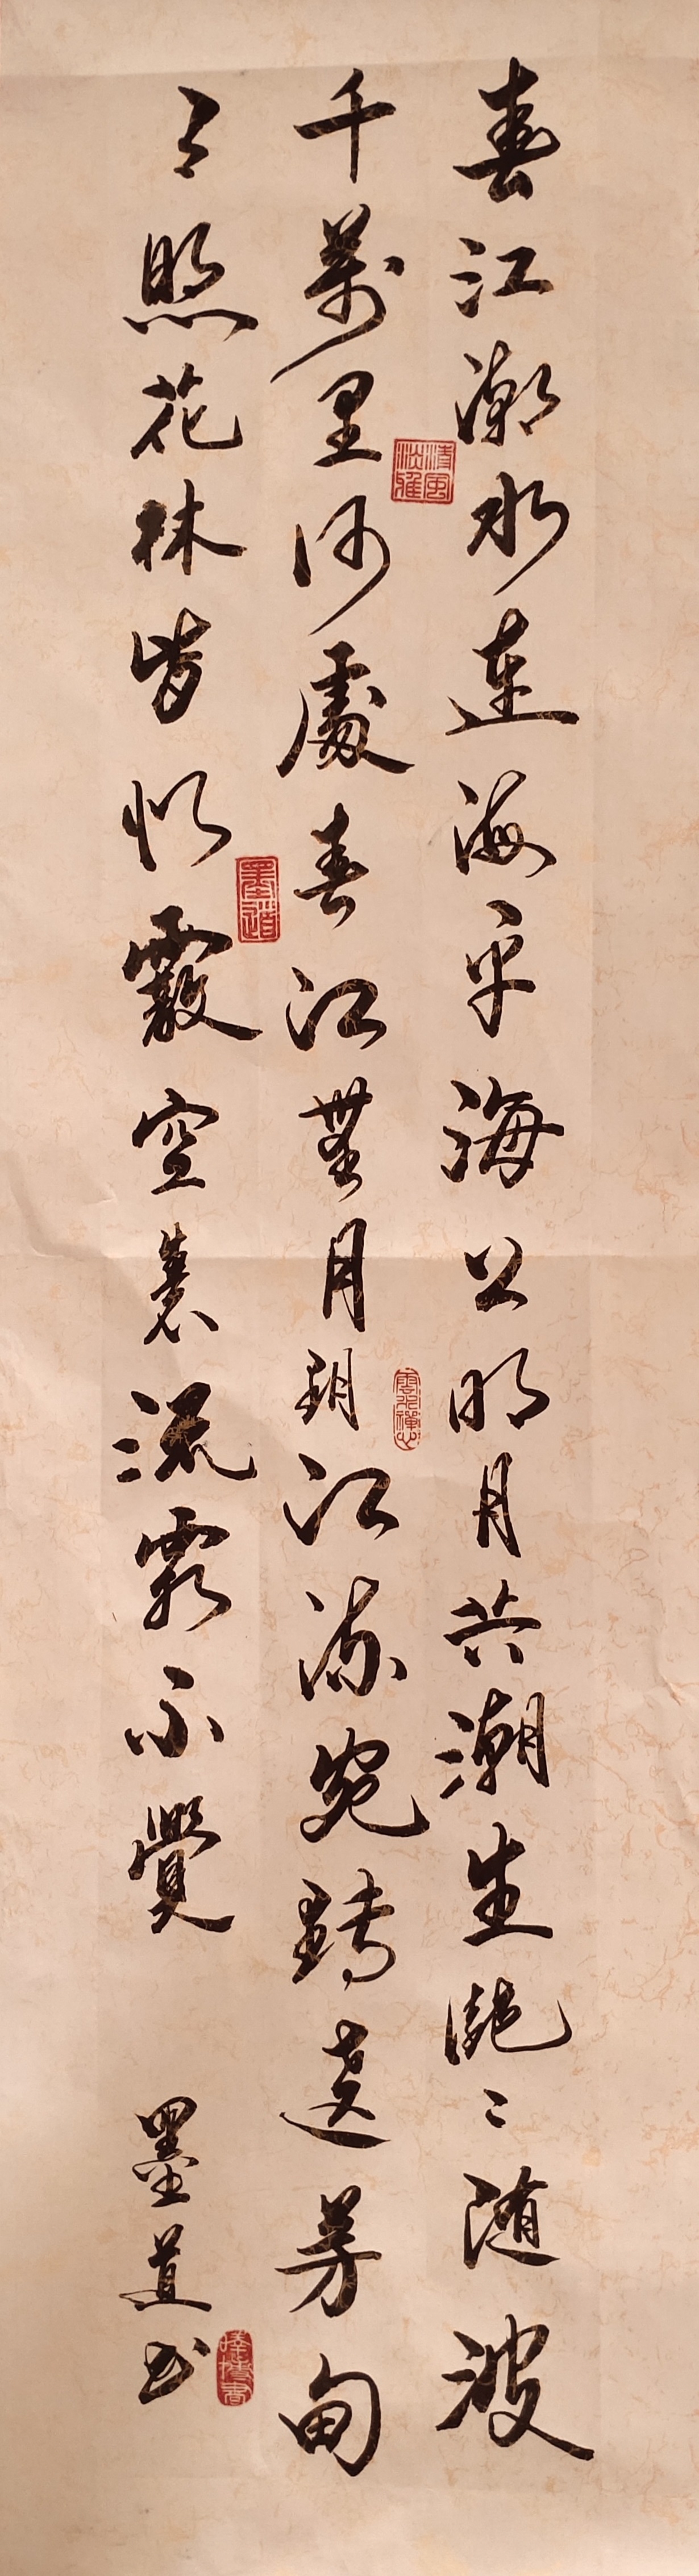 春江潮水連海平海上明月共潮生滟〻随波
千萬里何處春江無月明江流宛轉遶芳甸
月照花林皆似霰空裏流霜不覺
墨道書
清風淡雅
墨道